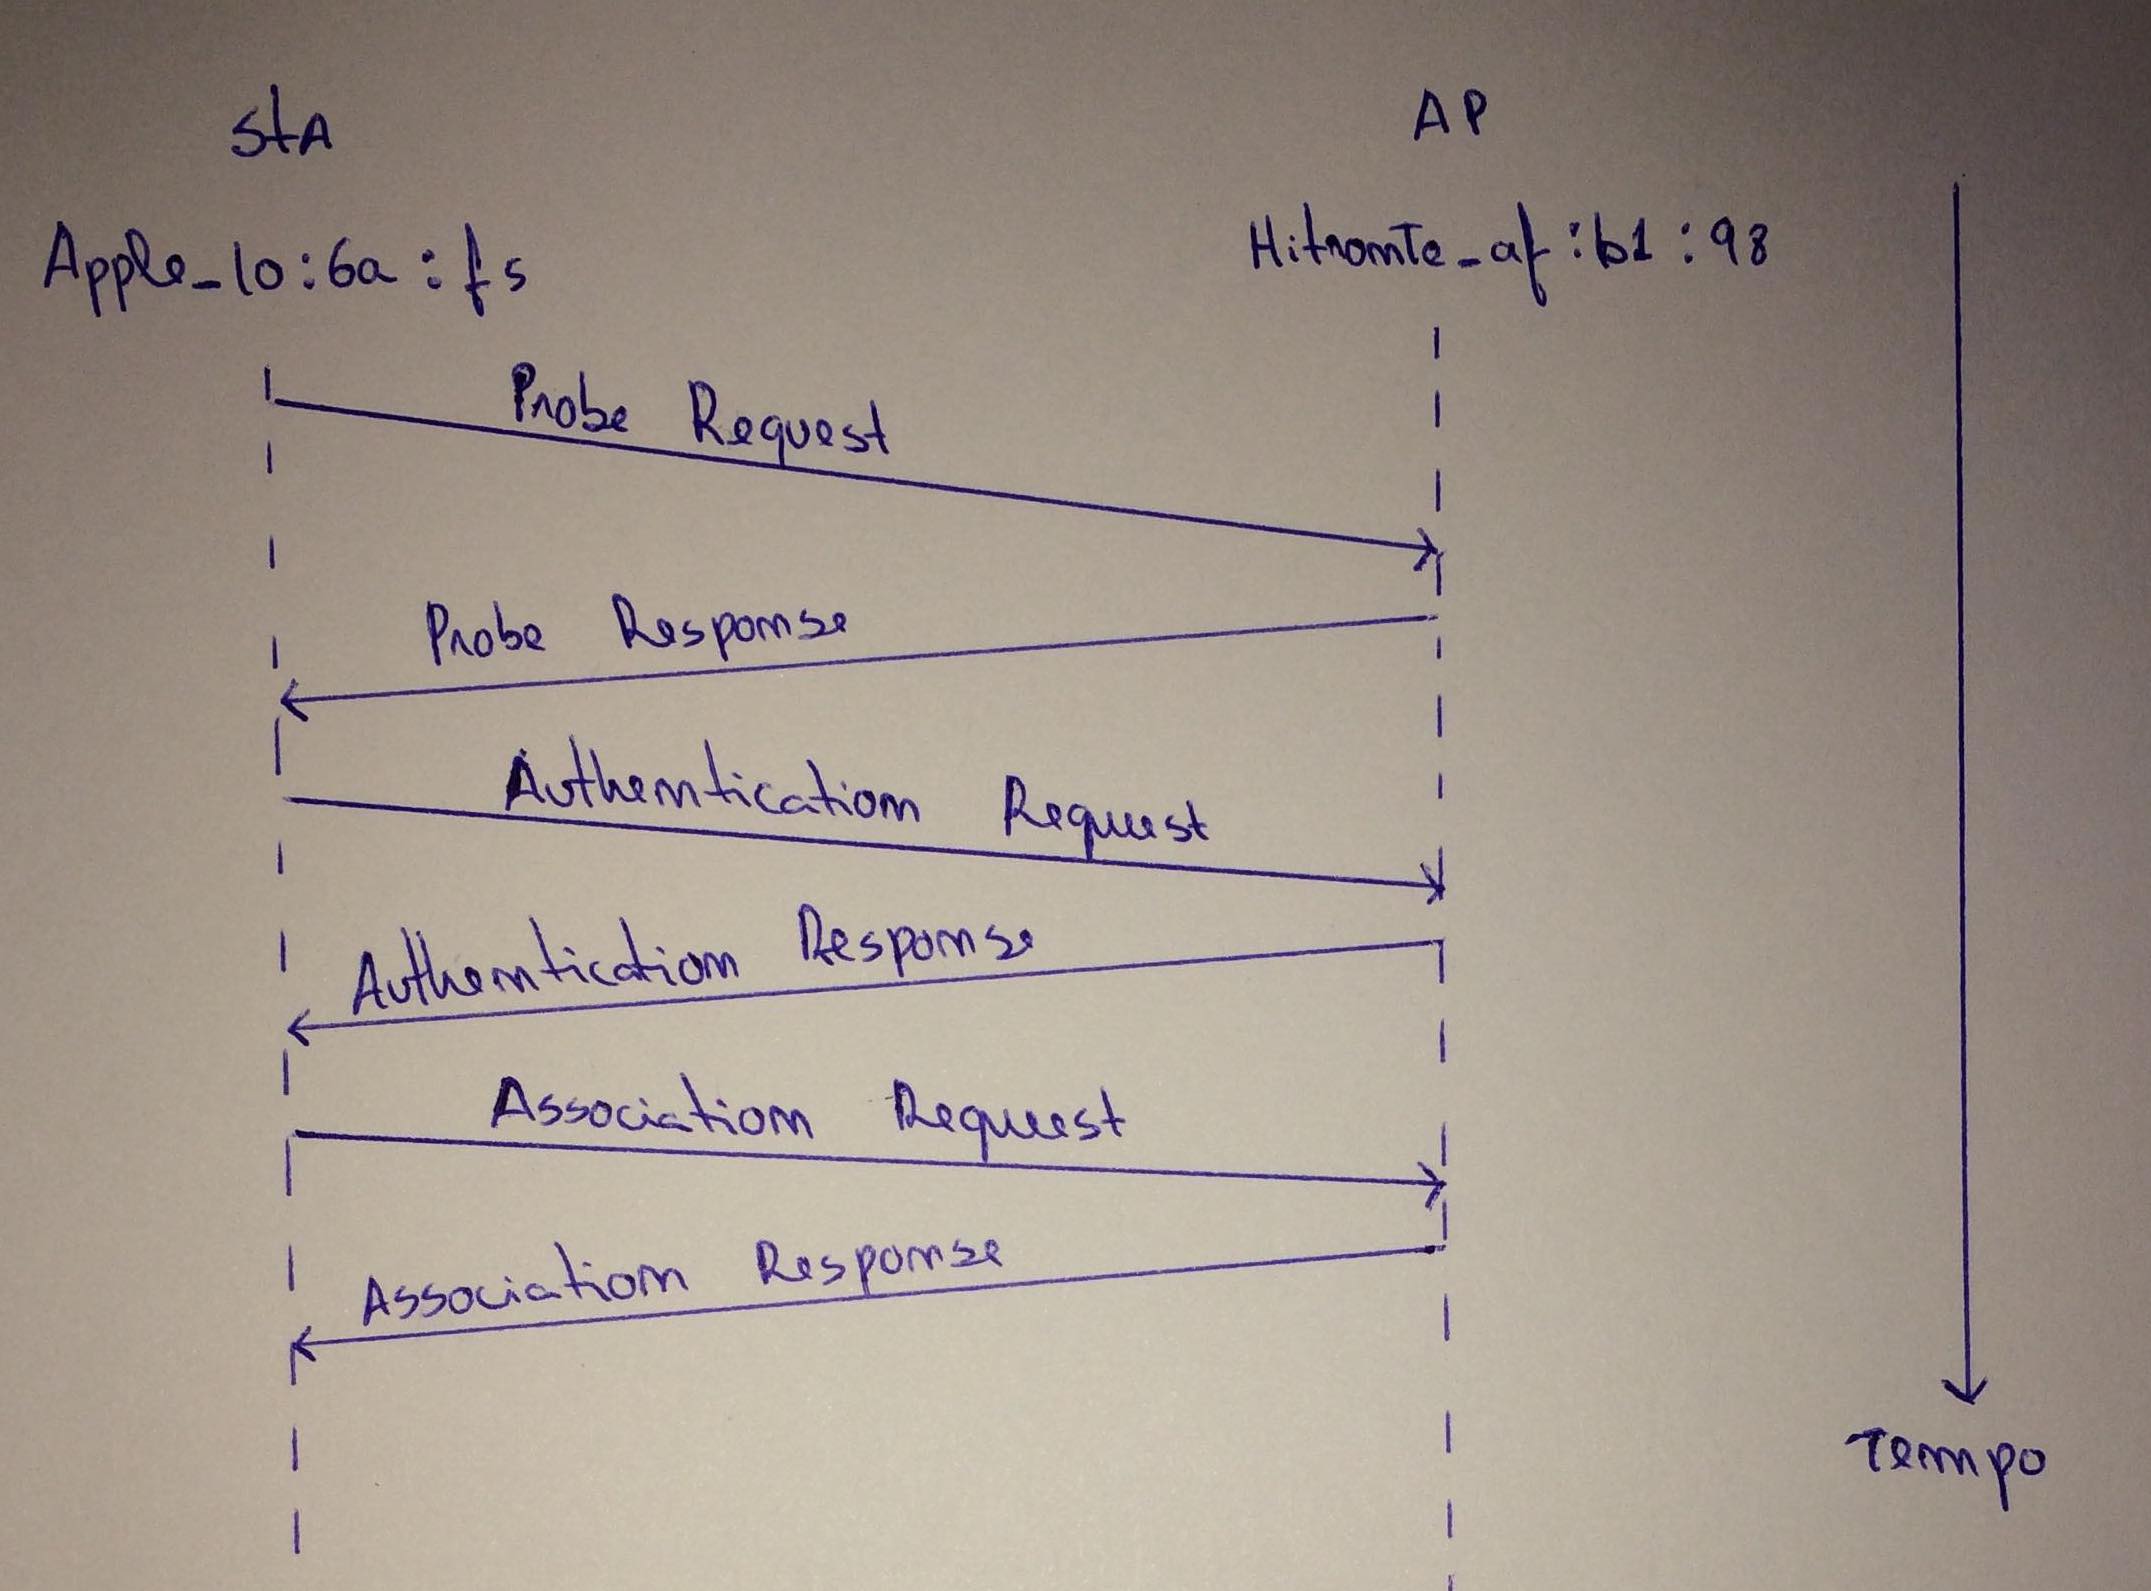 StA
AP
Apple_10:6a:f5
HitronTe_af:b1:98
Probe Request
Probe Response
Authentication Request
Authentication Response
Association Request
Association Response
Tempo